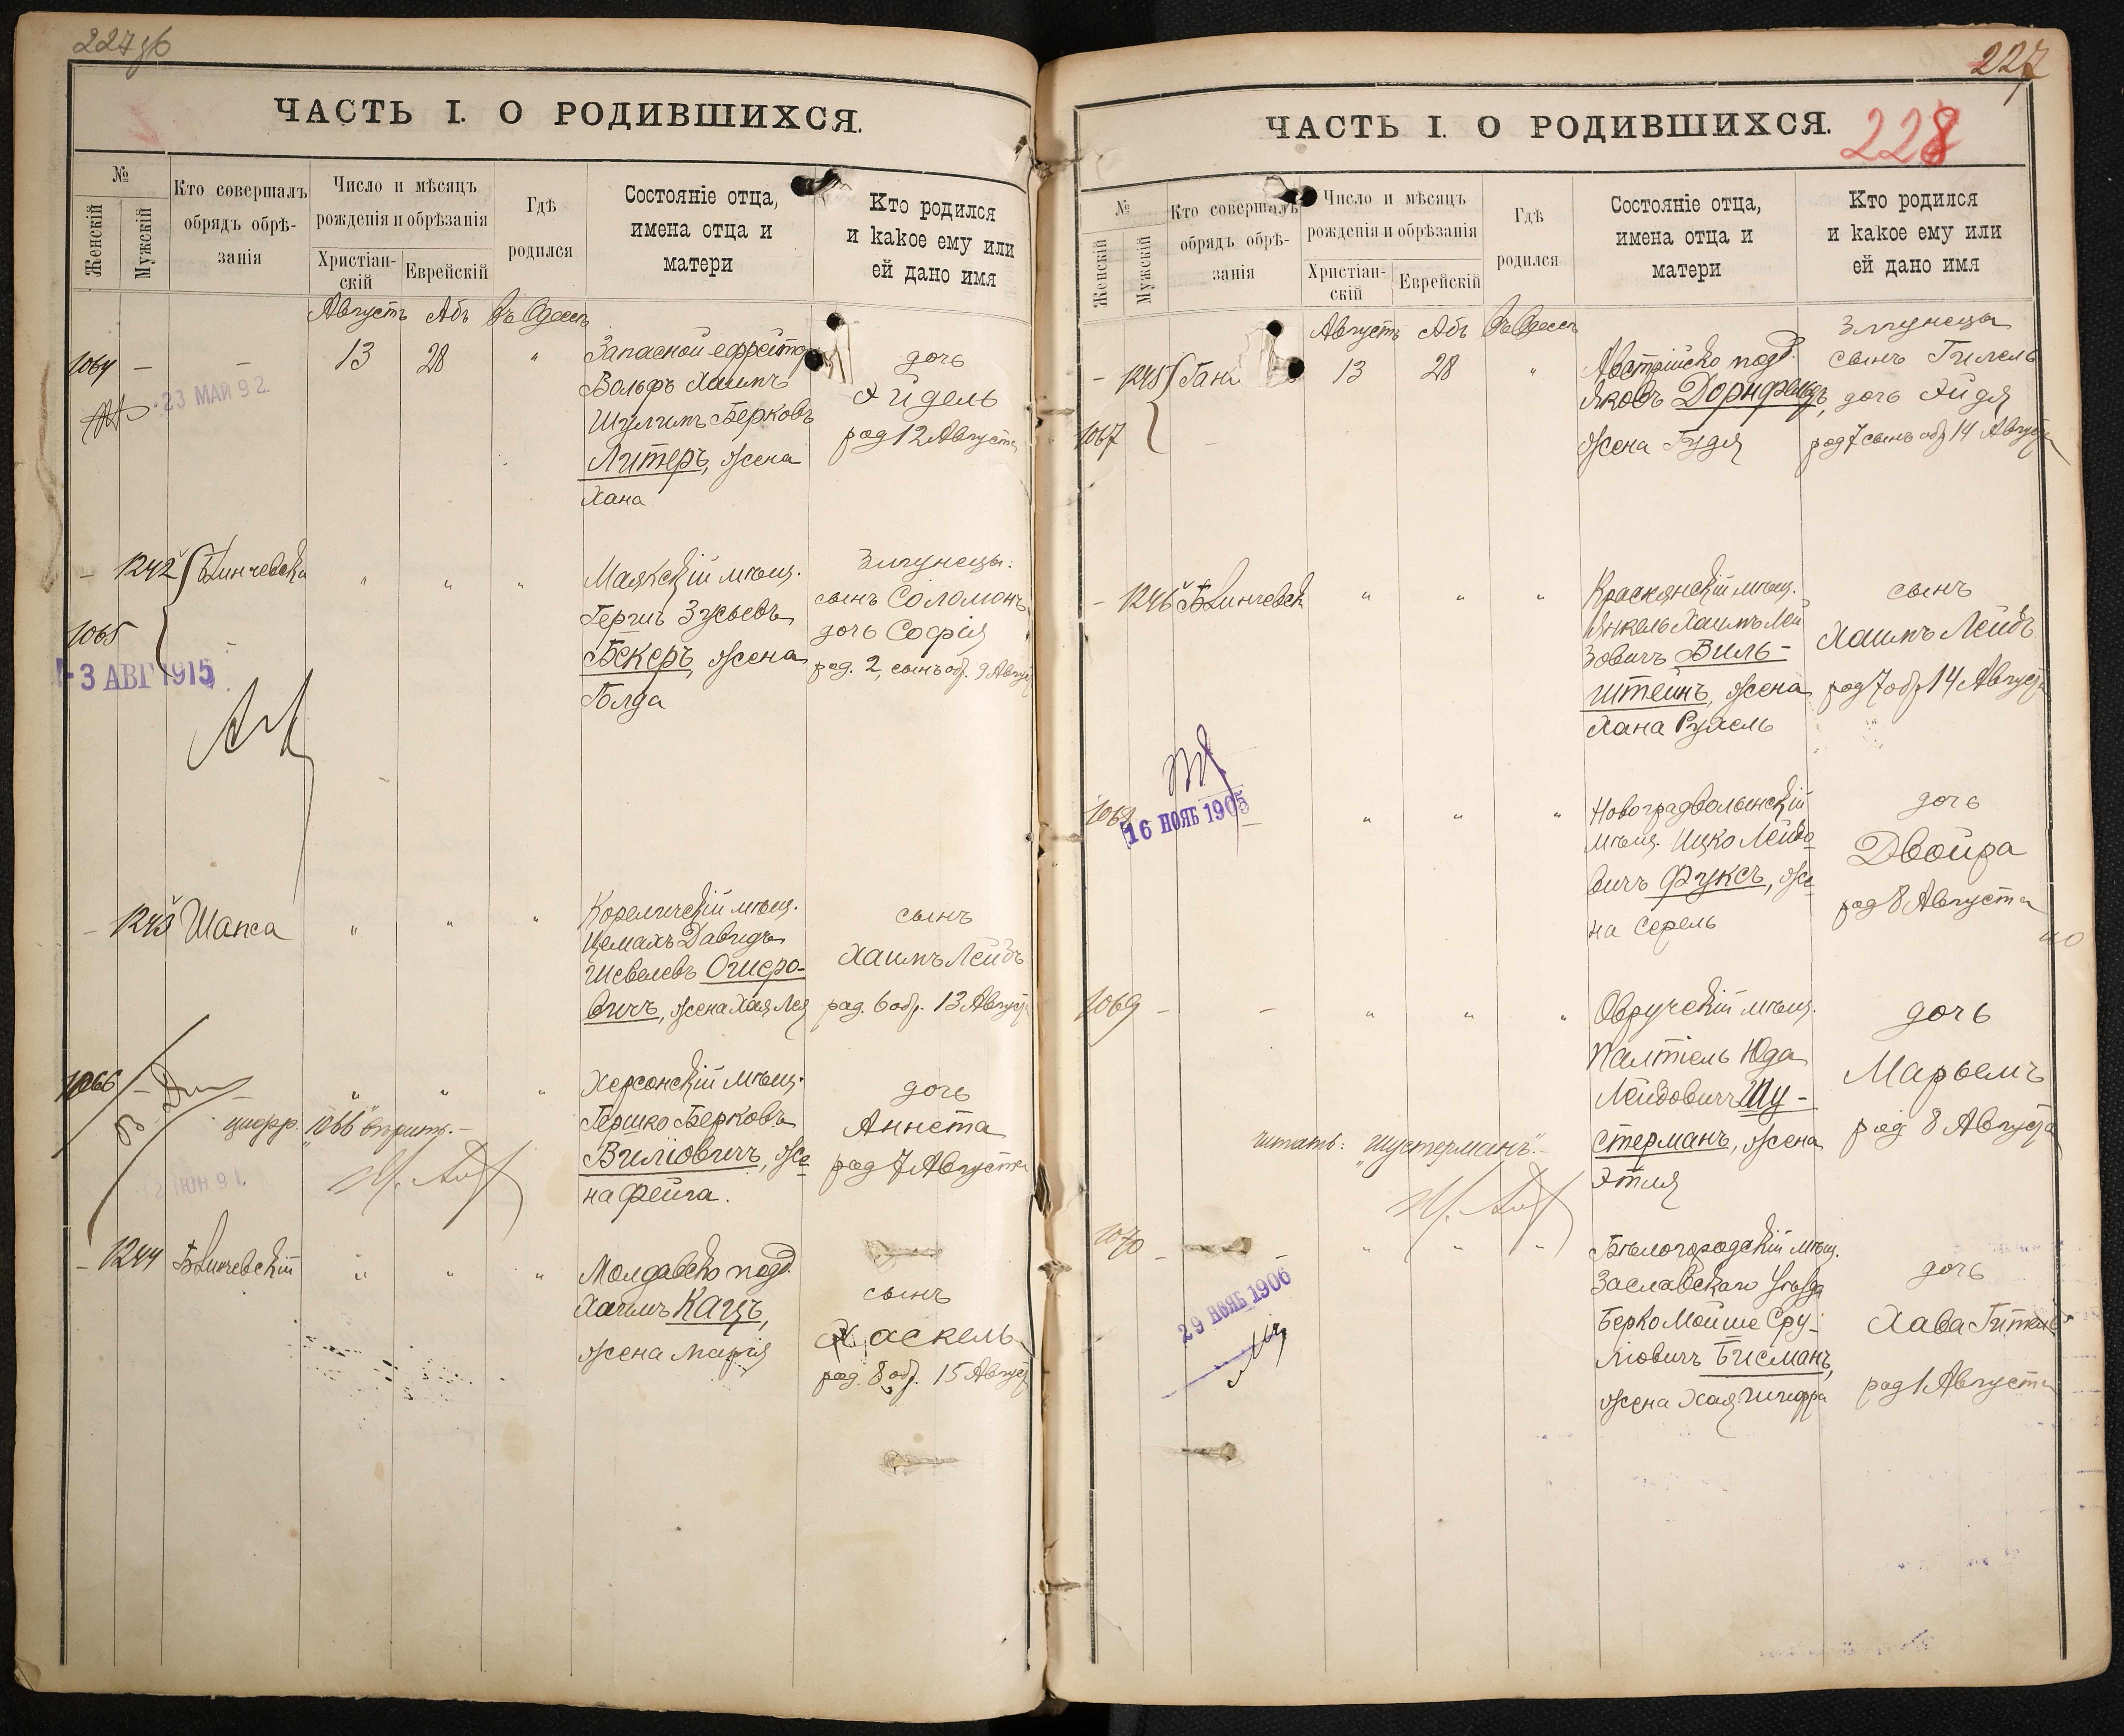 227 об
ЧАСТЬ I. О РОДИВШИХСЯ.
№
Женскій
Мужскій
Кто совершалъ
обрядъ обрѣ-
занія
Число и мѣсяцъ
рожденія и обрѣзанія
Христіан-
скій
Еврейскій
Гдѣ
родился
Состояніе отца,
имена отца и
матери
Кто родился
и какое ему или
ей дано имя
Августъ Абъ Въ Одессѣ
1064 — — 13 28 "
23 МАЙ 92.
Запасной ефрейтор
Вольфъ Хаимъ
Шулимъ Берковъ
Литеръ, жена
Хана
дочь
Хйдель
род 12 Августа
— 1242 Блинчевскі " " "
1065 —
-3 АВГ 1915
Маякскій мѣщ.
Гершъ Зусьевъ
Бекеръ, жена
Голда
Близнецы:
сынъ Соломонъ
дочь Софія
род. 2, сынъ обр. 9 Август
— 1243 Шапса " " "
Кореличскій мѣщ.
Цемахъ Давидъ
Шевелевъ Ошеро-
вичъ, жена Хая Лея
сынъ
Хаимъ Лейбъ
род. 6 обр. 13 Август
1066 — — " " "
цифр. "1066" вѣрить. —
12 ІЮН 91.
Херсонскій мѣщ.
Гершко Берковъ
Виліовичъ, же-
на Фейга.
дочь
Аннета
род 7 Августа
— 1244 Блинчевскій " " "
Молдавско под.
Хаимъ Кацъ,
жена Марія
сынъ
Хаскель
род. 8 обр. 15 Август
227
228
ЧАСТЬ I. О РОДИВШИХСЯ.
№
Женскій
Мужскій
Кто совершалъ
обрядъ обрѣ-
занія
Число и мѣсяцъ
рожденія и обрѣзанія
Христіан-
скій
Еврейскій
Гдѣ
родился
Состояніе отца,
имена отца и
матери
Кто родился
и какое ему или
ей дано имя
Августъ Абъ Въ Одессѣ
— 1245 13 28 "
1067 —
Австрійско подд.
Яковъ
жена Гудя
Близнецы
сынъ Гилель
дочь Эйдя
род 7 сынъ обр 14 Августа
— 1246 Блинчевск " " "
Краснянскій мѣщ.
Янкель Хаимъ Лей
зовичъ Биль-
штейнъ, жена
Хана Рухель
сынъ
Хаимъ Лейбъ
род 7 обр 14 Августа
1068 — " " "
16 НОЯБ 1905
Новоградволынскій
мѣщ. Ицко Лейбо
вичъ Фуксъ, же-
на Серель
дочь
Двойра
род 8 Августа
1069 — — " " "
Овручскій мѣщ.
Палтіель Юда
Лейбовичъ Шу-
стерманъ, жена
Этля
читать: "Шустерманъ". —
дочь
Марьемъ
род 8 Августа
1070 — — " " "
29 НОЯБ 1906
Бѣлогородскій мѣщ.
Заславскаго уѣзда
Берко Мойше Сру-
ліовичъ Бисманъ,
жена Хая Шифра
дочь
Хава Гитель
род 1 Августа